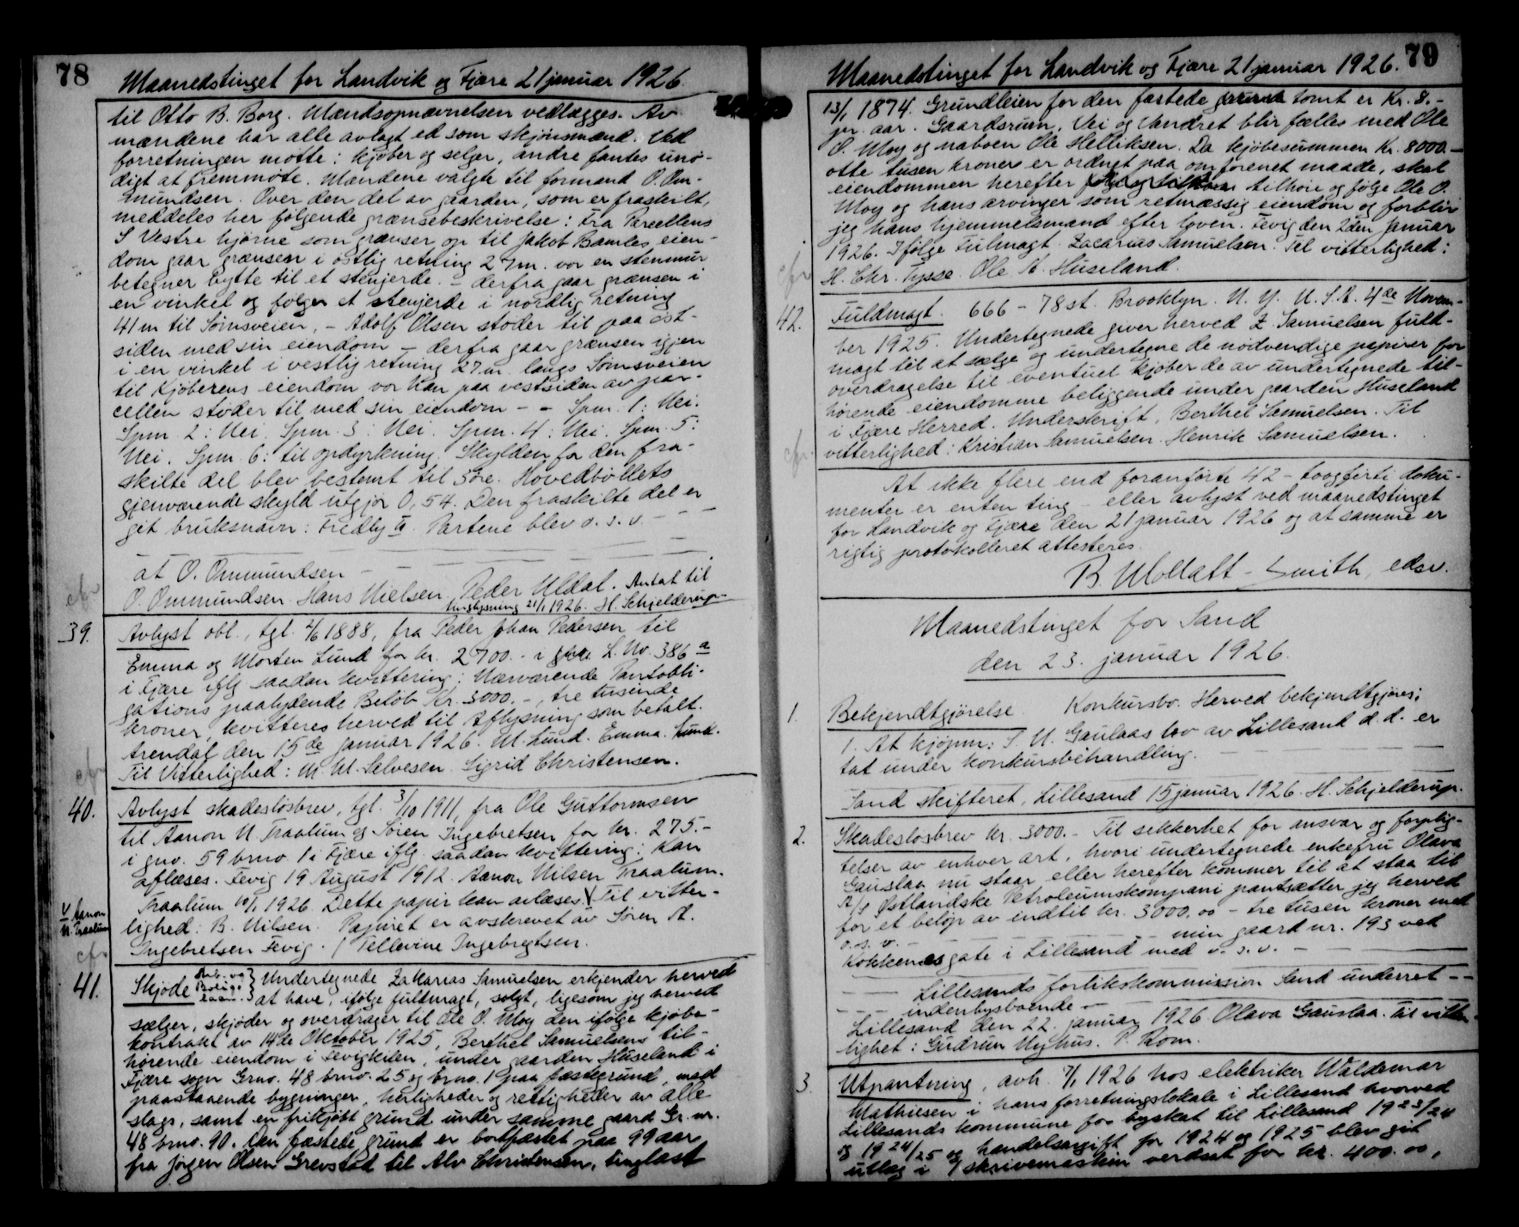 78
Maanedstinget for Landvik og Fjære 21 januar 1926
til Otto B. Borg. Mandsopnævnelsen vedlægges. Av
mændene har alle avlagt ed som skjønsmænd. Ved
forretningen møtte: kjøber og selger, andre fantes unø-
digt at fremmøte. Mændene valgte til formand O. Om-
mundsen. Over den del av gaarden, som er fraskilt,
meddeles her følgende grænsebeskrivelse: Fra Parcellens
S Vestre hjørne som grænser op til Jakob Bamles eien-
dom gaar grænsen i østlig retning 27 m. vor en stenmur
betegner bytte til et stengjerde. - derfra gaar grænsen i
en vinkel og følger et stengjerde i nordlig retning
41 m til Sømsveien, - Adolf Olsen støder til paa øst-
siden med sin eiendom - derfra gaar grænsen igjen
i en vinkel i vestlig retning 27 m. langs Sømsveien
til Kjøberens eiendom vor han paa vestsiden av par-
cellen støder til med sin eiendom - - Spm. 1: Nei.
Spm 2: Nei. Spm. 3: Nei. Spm. 4: Nei. Spm. 5:
Nei. Spm. 6: til opdyrkning. Skylden for den fra-
skilte del blev bestemt til 5 øre. Hovedbølets
gjenværende skyld utgjør 0,54. Den fraskilte del er
git bruksnavn: Fredly a. Partene blev o. s. v. - - -
at O. Ommundsen -
O. Ommundsen Hans Nielsen Peder Uldal. Antat til
tinglysning 21/1 1926. H. Schjelderup.
39. Avlyst obl., tgl. 2/6 1888, fra Peder Johan Pedersen til
Emma og Morten Lund for kr. 2700.- i L. No. 386 a
i Fjære iflg saadan kvittering: Nærværende Pantobli-
gations paalydende Beløb Kr. 3000.-, tre tusinde
kroner, kvitteres herved til Aflysning som betalt.
Arendal den 15de januar 1926. M. Lund. Emma Lund.
Til Vitterlighed: M. M. Salvesen. Sigrid Christensen.
40. Avlyst skadesløsbrev, tgl. 3/10 1911, fra Ole Guttormsen
til Aanon N. Traalum og Søren Ingebretsen for kr. 275.-
i gno. 59 brno 1 i Fjære iflg. saadan kvittering: Kan
aflæses. Fevig 19 August 1912. Aanon Nilsen Traalum.
Traalum 10/1 1926. Dette papir kan avlæses. V Til vitter-
V Aanon
N. Traalum
lighed: B. Nilsen. Papiret er avskrevet av Søren A.
Ingebretsen Fevig. / Tellevine Ingebregtsen.
41. Skjøde Arb. og Boligs laan. } Undertegnede Zakarias Samuelsen erkjender herved
at have, ifølge fuldmagt, solgt, ligesom jeg herved
sælger, skjøder og overdrager til Ole O. Moy den ifølge kjøbe-
kontrakt av 14de Oktober 1925, Berthel Samuelsens til-
hørende eiendom i Fevigkilen, under gaarden Huseland i
Fjære sogn Grno. 48 brno. 25 og brno. 1 paa fæstegrund, med
paastaaende bygninger, herligheder og rettigheder av alle
slags, samt en frikjøbt grund under samme gaard Gr. nr.
48 brno. 90. Den fæstede grund er bortfæstet paa 99 aar
fra Jørgen Olsen Grevstad til Alv Christensen, tinglæst
79
Maanedstinget for Landvik og Fjære 21 januar 1926.
13/1 1874. Grundleien for den fæstede tomt er Kr. 8.-
pr. aar. Gaardsrum, Vei og Vandret blir fælles med Ole
O. Moy og naboen Ole Helliksen. Da kjøbesummen Kr. 8000.-
otte tusen kroner er ordnet paa omforenet maade, skal
eiendommen herefter tilhøie og følge Ole O.
Moy og hans arvinger som retmæssig eiendom og forblir
jeg hans hjemmelsmand efter loven. Fevig den 2den Januar
1926. Ifølge Fulmagt. Zacarias Samuelsen. Til vitterlighed:
H. Chr. Tysse. Ole A. Huseland.
42. Fuldmagt. 666 - 78 st. Brooklyn. N. Y. U. S. A. 4de Novem-
ber 1925. Undertegnede giver herved Z. Samuelsen fuld-
magt til at sælge og undertegne de nødvendige papirer for
overdragelse til eventuel kjøber de av undertegnede til-
hørende eiendomme beliggende under gaarden Huseland
i Fjære Herred. Underskrift, Berthel Samuelsen. Til
vitterlighed: Kristian Samuelsen. Henrik Samuelsen.
At ikke flere end foranførte 42 - toogførti doku-
menter er enten ting - eller avlyst ved maanedstinget
for Landvik og Fjære den 21 januar 1926 og at samme er
rigtig protokolleret attesteres.
B. Mollatt-Smith, edsv.
Maanedstinget for Sand
den 23. januar 1926.
1. Bekjendtgjørelse. Konkursbo. Herved bekjendtgjøres:
1. At kjøpm: S. N. Gauslaas bo av Lillesand d. d. er
tat under konkursbehandling.
Sand skifteret, Lillesand 15 januar 1926. H. Schjelderup.
2. Skadesløsbrev kr. 3000.- Til sikkerhet for ansvar og forplig-
telser av enhver art, hvori undertegnede enkefru Olava
Gauslaa nu staar eller herefter kommer til at staa til
A/S Østlandske Petroleumskompani pantsætter jeg herved
for et beløp av indtil kr. 3000.00 - tre tusen kroner med
o. s. v. - min gaard nr. 193 ved
Kokkenesgate i Lillesand med o. s. v. -
Lillesands forlikskommission Sand underret - -
indenbysboende -
Lillesand den 22. januar 1926 Olava Gauslaa. Til vitter-
lighet: Gudrun Nyhus. P. Rom.
3. Utpantning, avh. 7/1 1926 hos elektriker Waldemar
Mathiesen i hans forretningslokale i Lillesand hvorved
Lillesands kommune for byskat til Lillesand 1923/24
og 1924/25 og handelsavgift for 1924 og 1925 blev git
utlæg i 1 skrivemaskin verdsat for kr. 400.00,